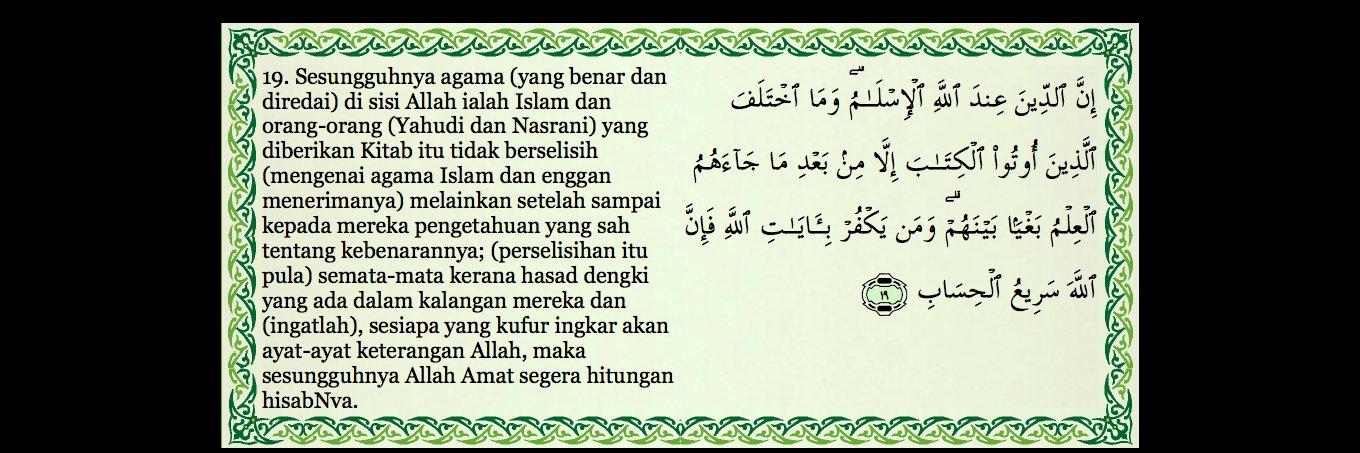 19. Sesungguhnya agama (yang benar dan
diredai) di sisi Allah ialah Islam dan
orang-orang (Yahudi dan Nasrani) yang
diberikan Kitab itu tidak berselisih
(mengenai agama Islam dan enggan
menerimanya) melainkan setelah sampai
kepada mereka pengetahuan yang sah
tentang kebenarannya; (perselisihan itu
pula) semata-mata kerana hasad dengki
yang ada dalam kalangan mereka dan
(ingatlah), sesiapa yang kufur ingkar akan
ayat-ayat keterangan Allah, maka
sesungguhnya Allah Amat segera hitungan
hisabNya.
إِنَّ ٱلدِّينَ عِندَ ٱللَّهِ ٱلْإِسْلَـٰمُ ۗ وَمَا ٱخْتَلَفَ
ٱلَّذِينَ أُوتُوا۟ ٱلْكِتَـٰبَ إِلَّا مِنۢ بَعْدِ مَا جَآءَهُمُ
ٱلْعِلْمُ بَغْيًۢا بَيْنَهُمْ ۗ وَمَن يَكْفُرْ بِـَٔايَـٰتِ ٱللَّهِ فَإِنَّ
ٱللَّهَ سَرِيعُ ٱلْحِسَابِ ١٩